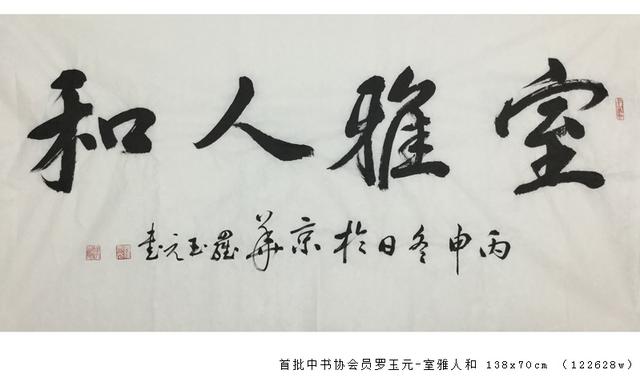 室雅人和
丙申冬日於京華羅玉元书
首批中书协会员罗玉元-室雅人和 138x70cm （122628w）